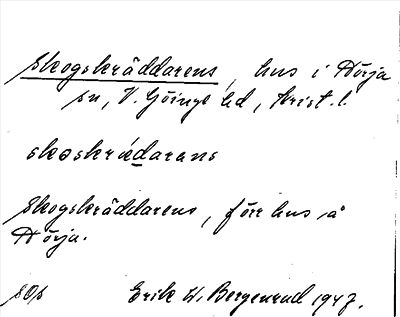 Skogskräddarens, hus i Nörja
sn, V. Göinge hd, Krist. l.
skoskrädarans
Skogskräddarens, förr hus å
Nörja.
sop
Erik W. Bergenrud 1947.